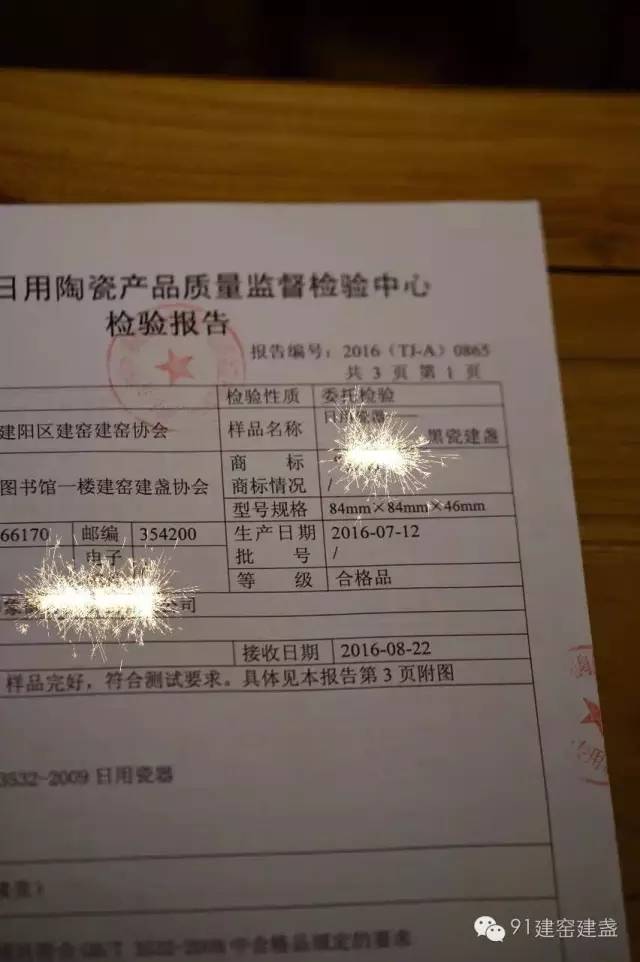 日用陶瓷产品质量监督检验中心
检验报告
报告编号：2016（TJ-A）0865
共 3 页 第 1 页
检验性质 委托检验
建阳区建窑建窑协会 样品名称 日用瓷器——
黑瓷建盏
商标
图书馆一楼建窑建盏协会 商标情况 /
型号规格 84mm×84mm×46mm
66170 邮编 354200 生产日期 2016-07-12
电子 批号 /
等级 合格品
公司
接收日期 2016-08-22
样品完好，符合测试要求。具体见本报告第 3 页附图
3532-2009 日用瓷器
GB/T 3532-2009 中合格品规定的要求
91建窑建盏